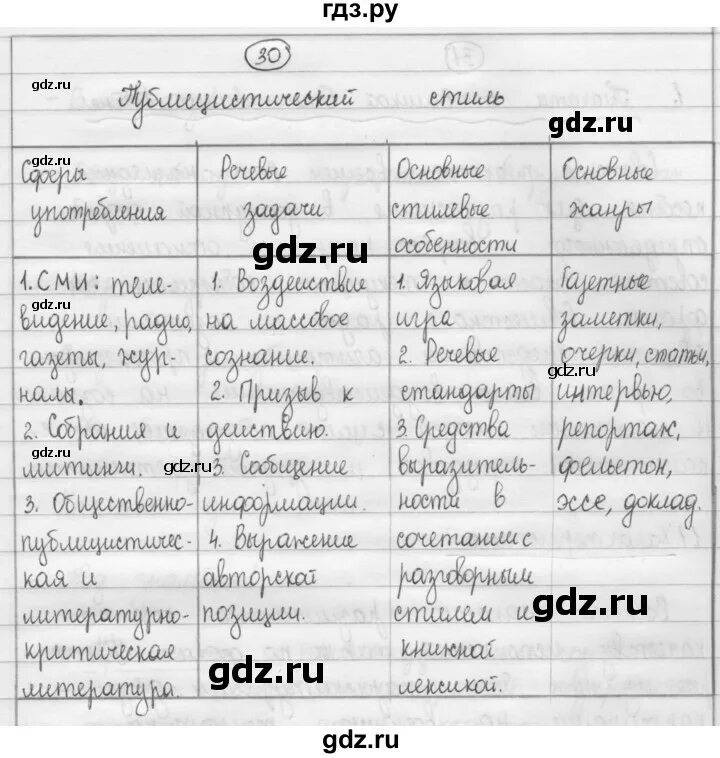 гдз.ру
30
Публицистический стиль
Сферы
употребления
Речевые
задачи
Основные
стилевые
особенности
Основные
жанры
1. СМИ: теле-
видение, радио,
газеты, жур-
налы.
2. Собрания и
митинги.
3. Общественно-
публицистичес-
кая и
литературно-
критическая
литература.
1. Воздействие
на массовое
сознание.
2. Призыв к
действию.
3. Сообщение
информации.
4. Выражение
авторской
позиции.
1. Языковая
игра
2. Речевые
стандарты
3. Средства
выразитель-
ности в
сочетании с
разговорным
стилем и
книжной
лексикой.
Газетные
заметки,
очерки, статьи,
интервью,
репортаж,
фельетон,
эссе, доклад.
gdz.ru
gdz.ru
gdz.ru
gdz.ru
gdz.ru
gdz.ru
gdz.ru
gdz.ru
gdz.ru
gdz.ru
gdz.ru
gdz.ru
gdz.ru